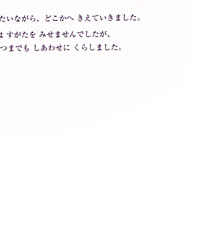 たいながら、どこかへ きえていきました。
は すがたを みせませんでしたが、
つまでも しあわせに くらしました。